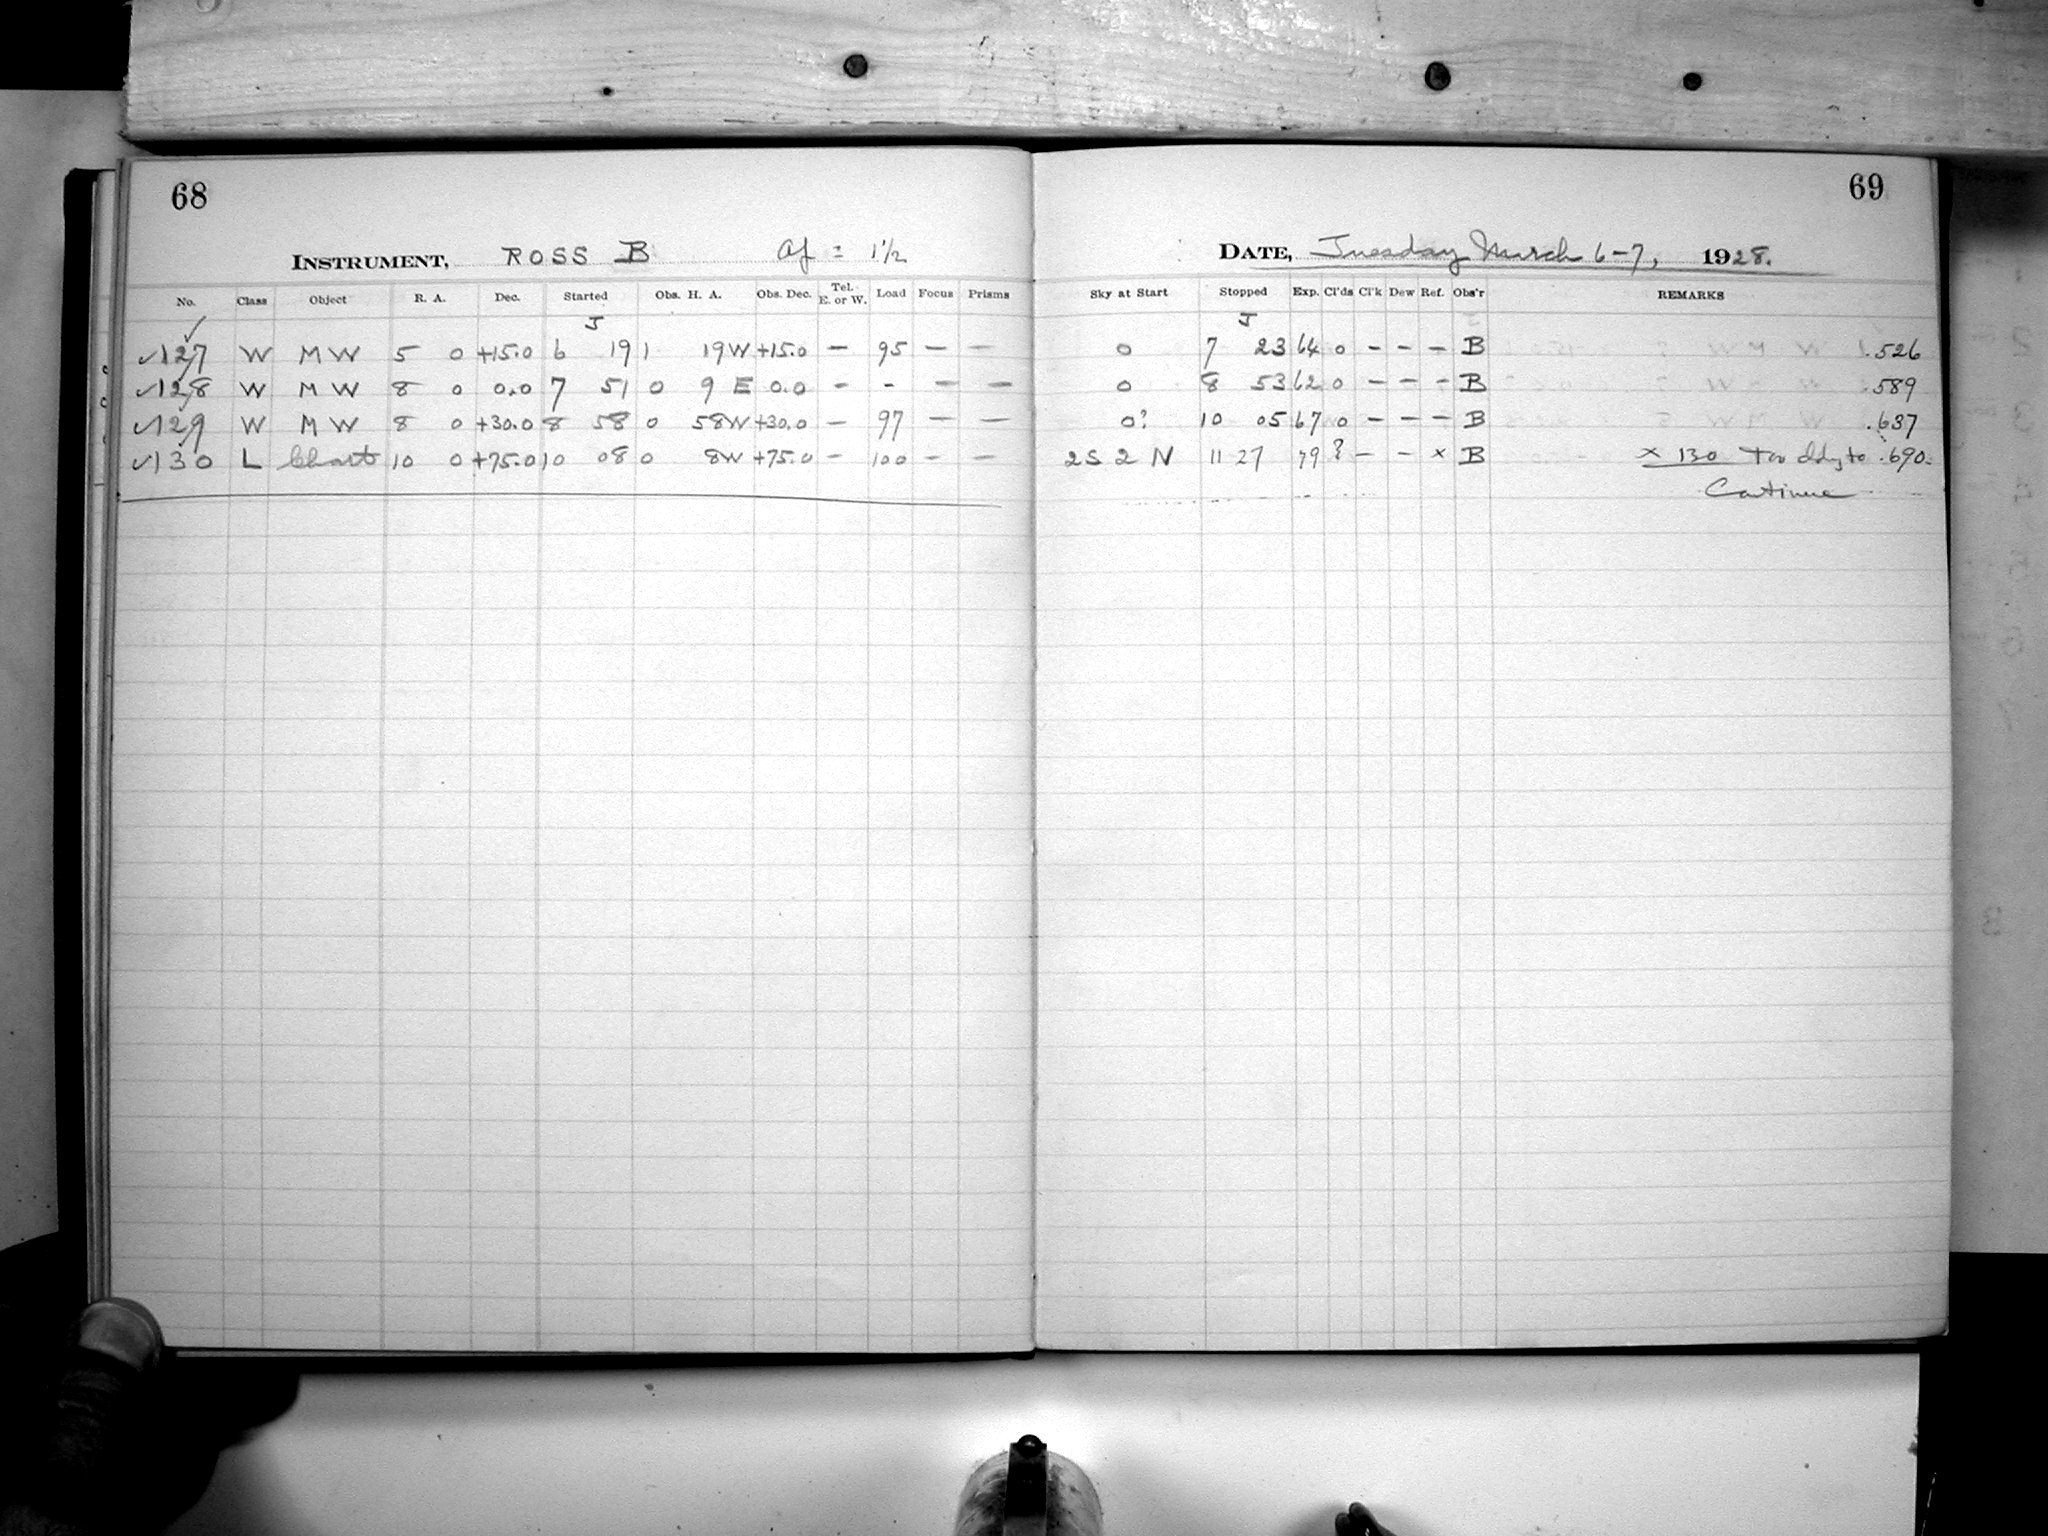 68
INSTRUMENT, ROSS B Af = 1½
No. Class Object R. A. Dec. Started Obs. H. A. Obs. Dec. Tel. E. or W. Load Focus Prisms
J
✓127 W M W 5 0 +15.0 6 19 1 19W +15.0 – 95 – –
✓128 W M W 8 0 0.0 7 51 0 9 E 0.0 – - – –
✓129 W M W 8 0 +30.0 8 58 0 58W +30.0 – 97 – –
✓130 L Chart 10 0 +75.0 10 08 0 8W +75.0 – 100 – –
69
DATE, Tuesday March 6-7, 1928.
Sky at Start Stopped Exp. Cl'ds Cl'k Dew Ref. Obs'r REMARKS
J
0 7 23 64 0 – – – B .526
0 8 53 62 0 – – – B .589
0? 10 05 67 0 – – – B .637
2S 2 N 11 27 79 ? – – x B x 130 Too cldy to .690
Continue